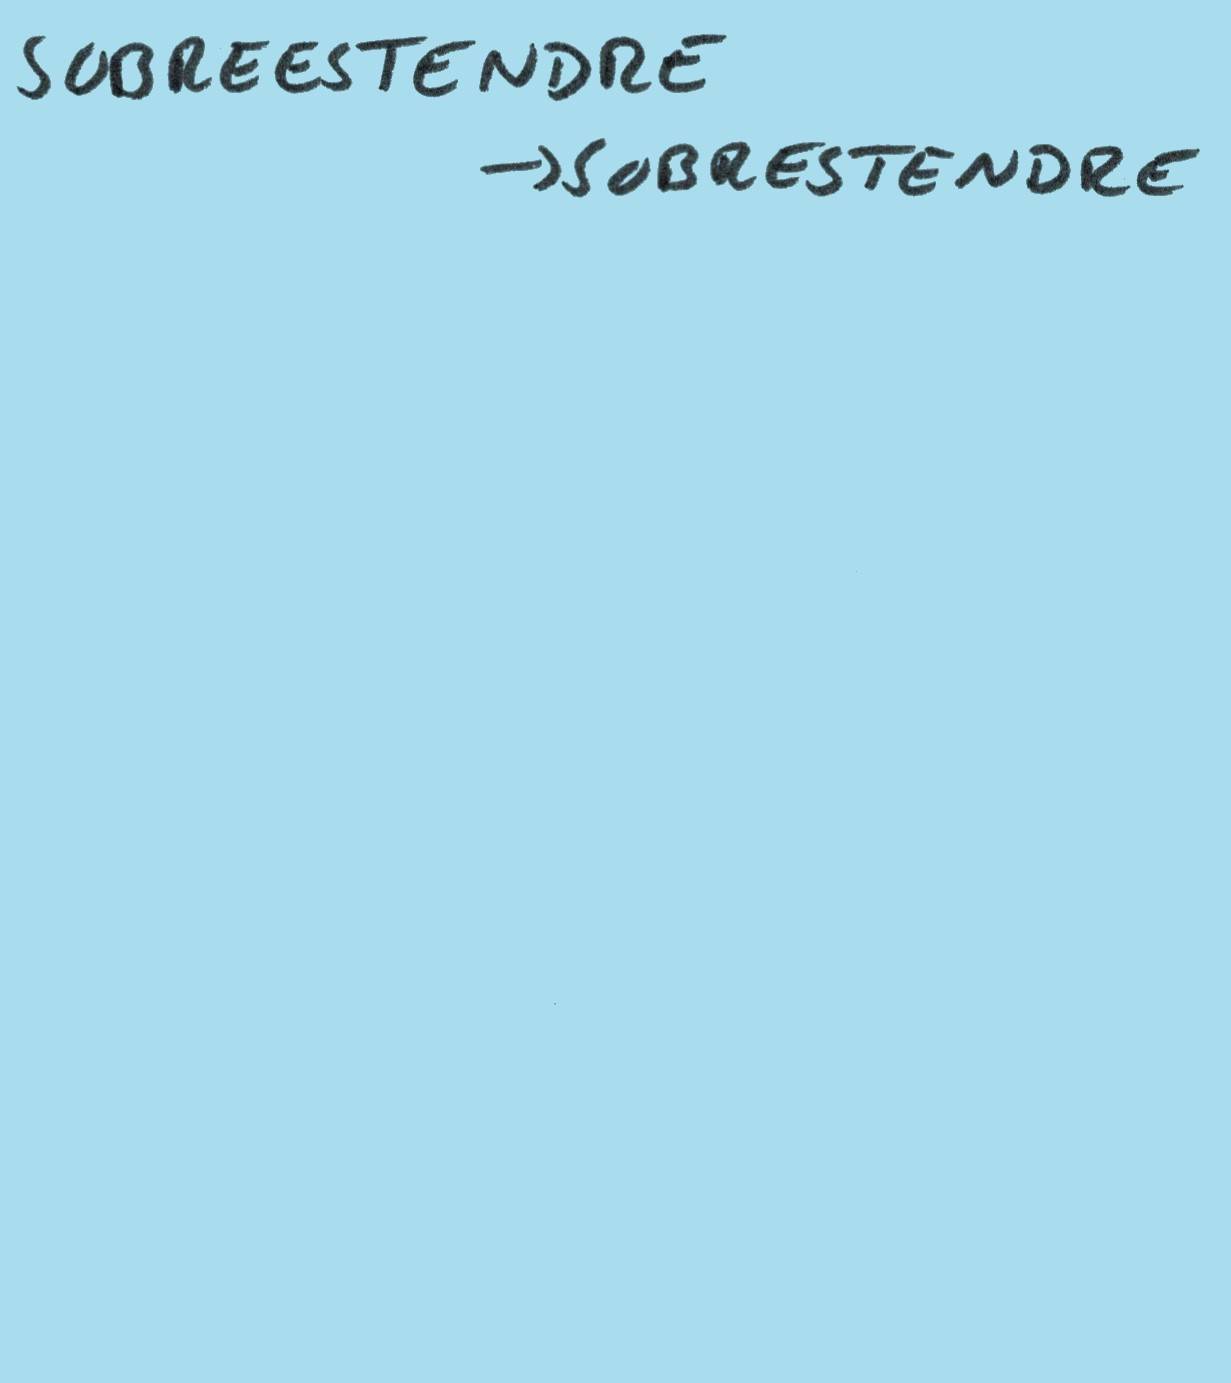 SOBREESTENDRE
→SOBRESTENDRE